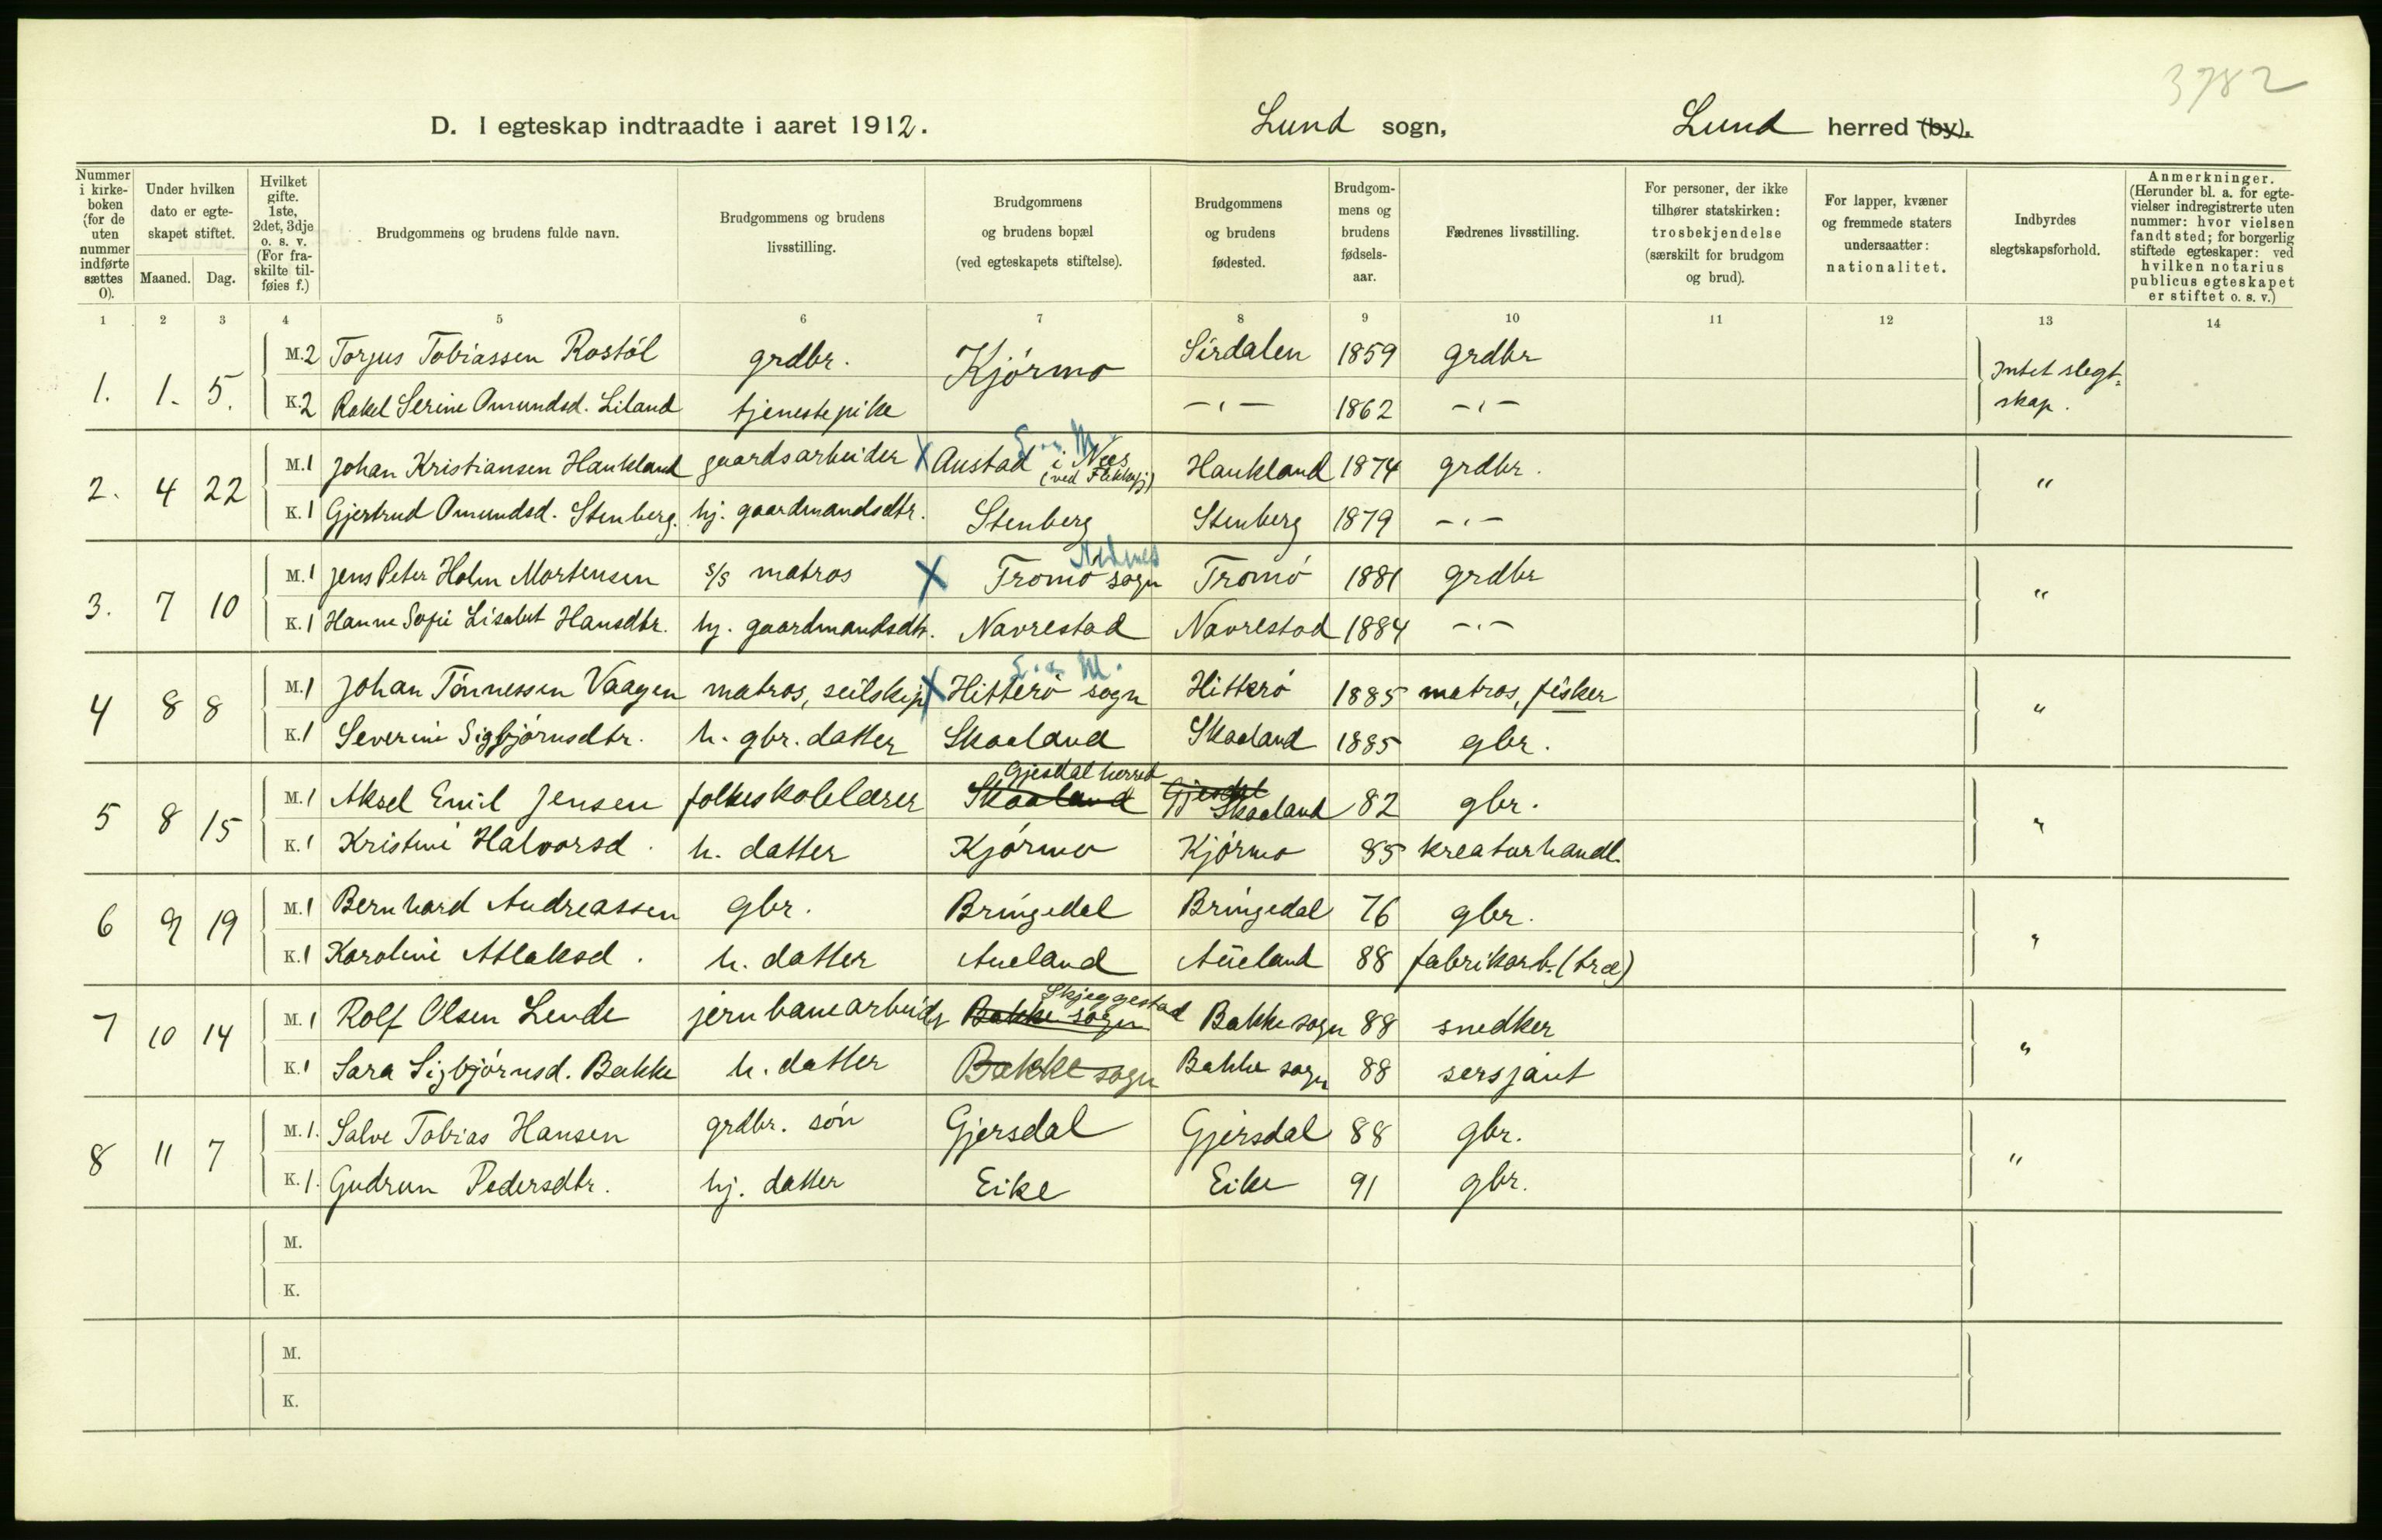 3782
D. I egteskap indtraadte i aaret 1912. Lund sogn, Lund herred (by).
Nummer i kirkeboken (for de uten nummer indførte sættes 0). Under hvilken dato er egteskapet stiftet. Maaned. Dag. Hvilket gifte. 1ste, 2det, 3dje o. s. v. (For fraskilte tilføies f.) Brudgommens og brudens fulde navn. Brudgommens og brudens livsstilling. Brudgommens og brudens bopæl (ved egteskapets stiftelse). Brudgommens og brudens fødested. Brudgommens og brudens fødselsaar. Fædrenes livsstilling. For personer, der ikke tilhører statskirken: trosbekjendelse (særskilt for brudgom og brud). For lapper, kvæner og fremmede staters undersaatter: nationalitet. Indbyrdes slegtskapsforhold. Anmerkninger. (Herunder bl. a. for egtevielser indregistrerte uten nummer: hvor vielsen fandt sted; for borgerlig stiftede egteskaper: ved hvilken notarius publicus egteskapet er stiftet o. s. v.)
1 2 3 4 5 6 7 8 9 10 11 12 13 14
1. 1. 5. M. 2 Torjus Tobiassen Rostöl grdbr. Kjörmo Sirdalen 1859 grdbr Intet slegtskap.
K. 2 Rakel Serine Omundsd. Liland tjenestepike -"- 1862 -"-
2. 4 22 M. 1 Johan Kristiansen Haukland gaardsarbeider X Austad i Næs (ved Flekkefj) Haukland 1874 grdbr. "
K. 1 Gjertrud Omundsd. Stenberg. hj. gaardmandsdtr. Stenberg Stenberg 1879 -"-
3. 7 10 M. 1 Jens Peter Holm Mortensen s/s matros X Nedenes Tromö sogn Tromö 1881 grdbr "
K. 1 Hanne Sofie Lisabet Hansdtr. hj. gaardmandsdtr. Navrestad Navrestad 1884 -"-
4 8 8 M. 1 Johan Tönnessen Vaagen matros, seilskip X L. a. M. Hitterö sogn Hitterö 1885 matros, fisker "
K. 1 Severine Sigbjörnsdtr. h. gbr. datter Skaaland Skaaland 1885 gbr.
5 8 15 M. 1 Aksel Emil Jensen folkeskolelærer Skaaland Gjesdal herred Gjesdal Skaaland 82 gbr. "
K. 1 Kristine Halvorsd. h. datter Kjörmo Kjörmo 85 kreaturhandl.
6 9 19 M. 1 Bernhard Andreassen gbr. Bringedal Bringedal 76 gbr. "
K. 1 Karoline Atlaksd. h. datter Aueland Aueland 88 fabrikarb. (træ)
7 10 14 M. 1 Rolf Olsen Lende jernbanearbeider Bakke sogn Skjeggestad Bakke sogn 88 snedker "
K. 1 Sara Sigbjörnsd. Bakke h. datter Bakke sogn Bakke sogn 88 sersjant
8 11 7 M. 1. Salve Tobias Hansen grdbr. sön Gjersdal Gjersdal 88 gbr. "
K. 1. Gudrun Pedersdtr. hj. datter Eike Eike 91 gbr.
M.
K.
M.
K.